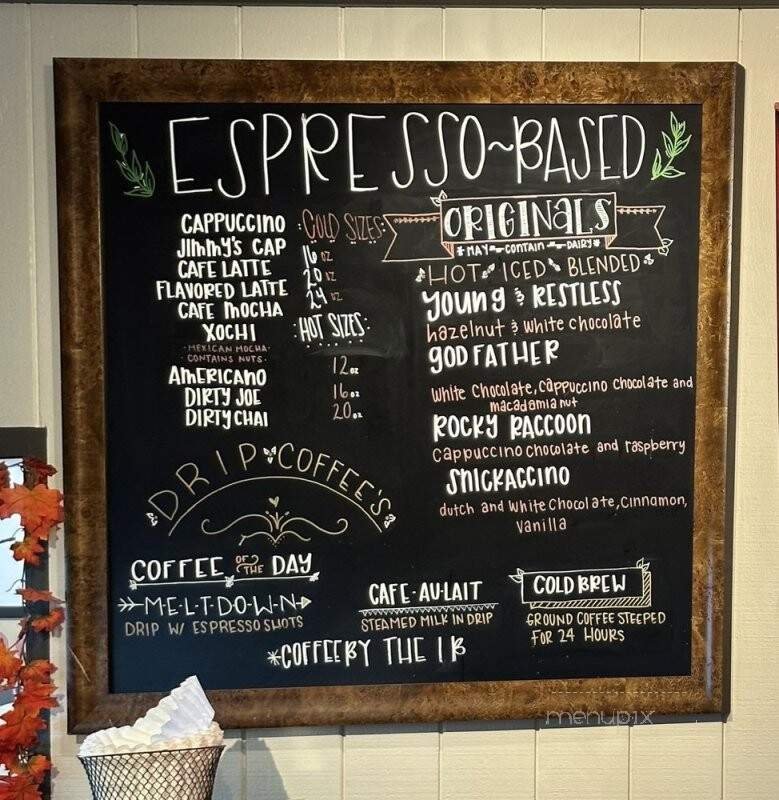 ESPRESSO~BASED
CAPPUCCINO
JIMMY'S CAP
CAFE LATTE
FLAVORED LATTE
CAFE MOCHA
XOCHI
-MEXICAN MOCHA-
CONTAINS NUTS-
AMERICANO
DIRTY JOE
DIRTY CHAI
COLD SIZES:
16 OZ
20 OZ
24 OZ
HOT SIZES:
12 oz
16 oz
20 oz
ORIGINALS
*MAY CONTAIN DAIRY*
HOT ICED BLENDED
YOUNG & RESTLESS
hazelnut & white chocolate
GODFATHER
White Chocolate, cappuccino chocolate and
macadamia nut
ROCKY RACCOON
Cappuccino chocolate and raspberry
SNICKACCINO
dutch and White Chocolate, Cinnamon,
Vanilla
DRIP COFFEE'S
COFFEE OF THE DAY
M-E-L-T-D-O-W-N
DRIP W/ ESPRESSO SHOTS
CAFE-AU-LAIT
STEAMED MILK IN DRIP
COLD BREW
GROUND COFFEE STEEPED
FOR 24 HOURS
*COFFEE BY THE lB
menupix